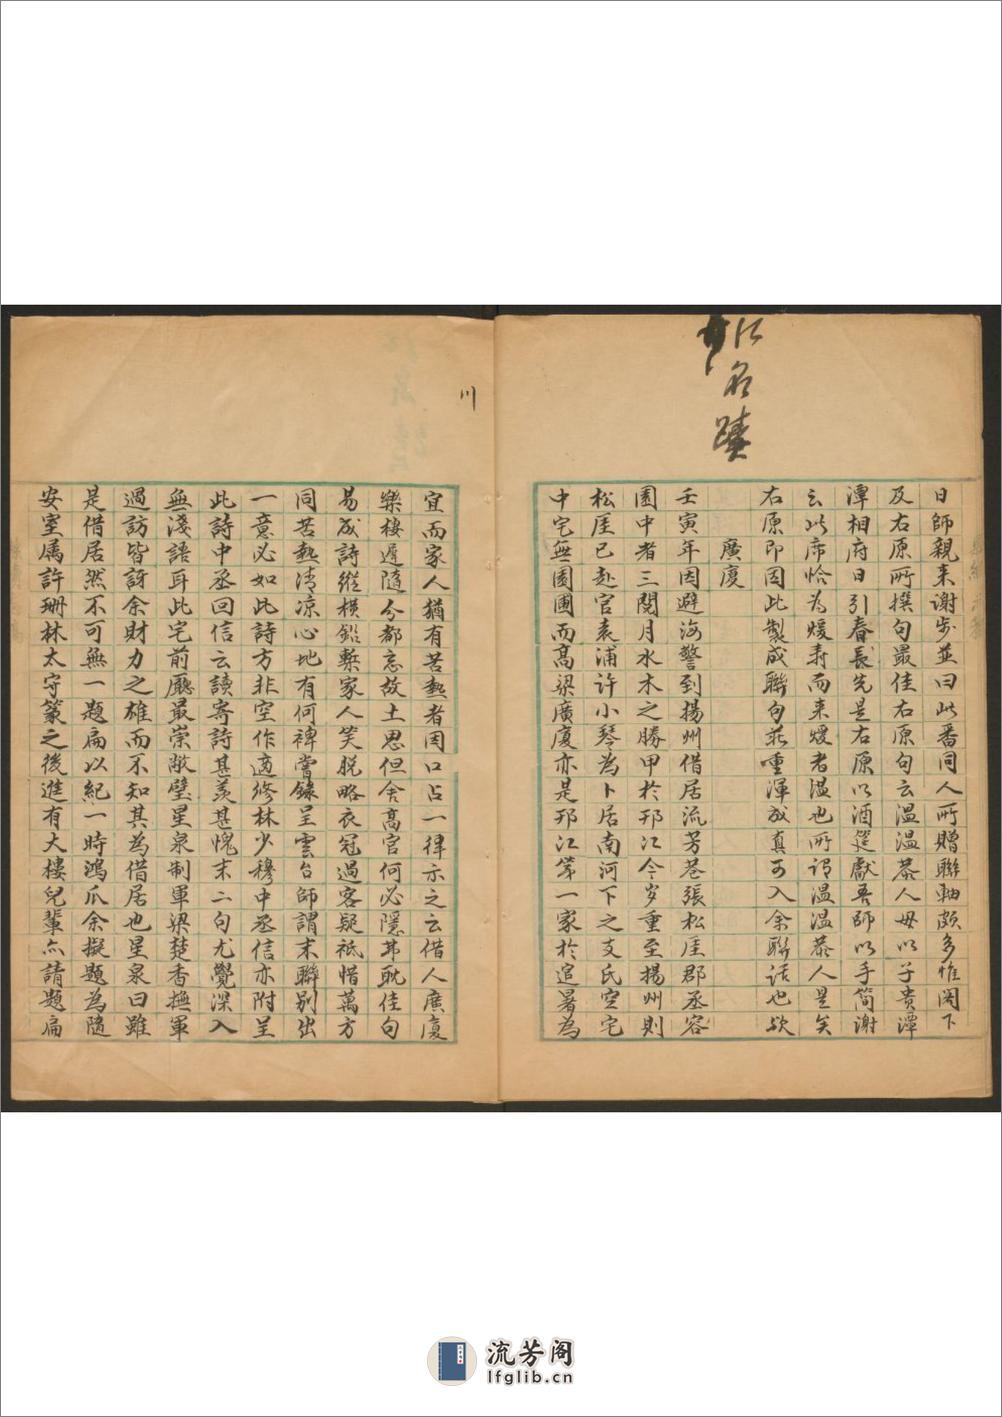 江名蹟
日師親来谢步並曰此番同人所贈聯軸頗多惟閣下
及右原所撰句最佳右原句云温温恭人母以子貴潭
潭相府日引春長先是右原以酒筵獻吾師以手简谢
云此席恰为煖寿而来煖者温也所谓温温恭人是矣
右原即因此製成聯句莊重渾成真可入余聯話也欤
廣廈
壬寅年因避海警到揚州借居流芳巷張松厓郡丞容
園中者三閱月水木之勝甲於邗江今岁重至揚州則
松厓已赴官袁浦许小琴為卜居南河下之支氏空宅
中宅無園圃而高梁廣廈亦是邗江第一家於逭暑為
川
宜而家人猶有苦熱者因口占一律示之云借人廣廈
樂棲遲隨分都忘故土思但舍高官何必隱弗耽佳句
易成詩縱橫鉛槧家人笑脱略衣冠過客疑祗惜萬方
同苦熱清凉心地有何裨嘗錄呈雲台師謂末聯别出
一意必如此詩方非空作適修林少穆中丞信亦附呈
此詩中丞回信云讀寄詩甚羨甚愧末二句尤覺深入
無淺語耳此宅前廳最崇敞璧星泉制軍梁楚香撫軍
過訪皆訝余財力之雄而不知其為借居也星泉曰雖
是借居然不可無一題扁以紀一時鴻爪余擬題為隨
安室属許珊林太守篆之後進有大樓兒輩亦請題扁
流芳阁
lfglib.cn